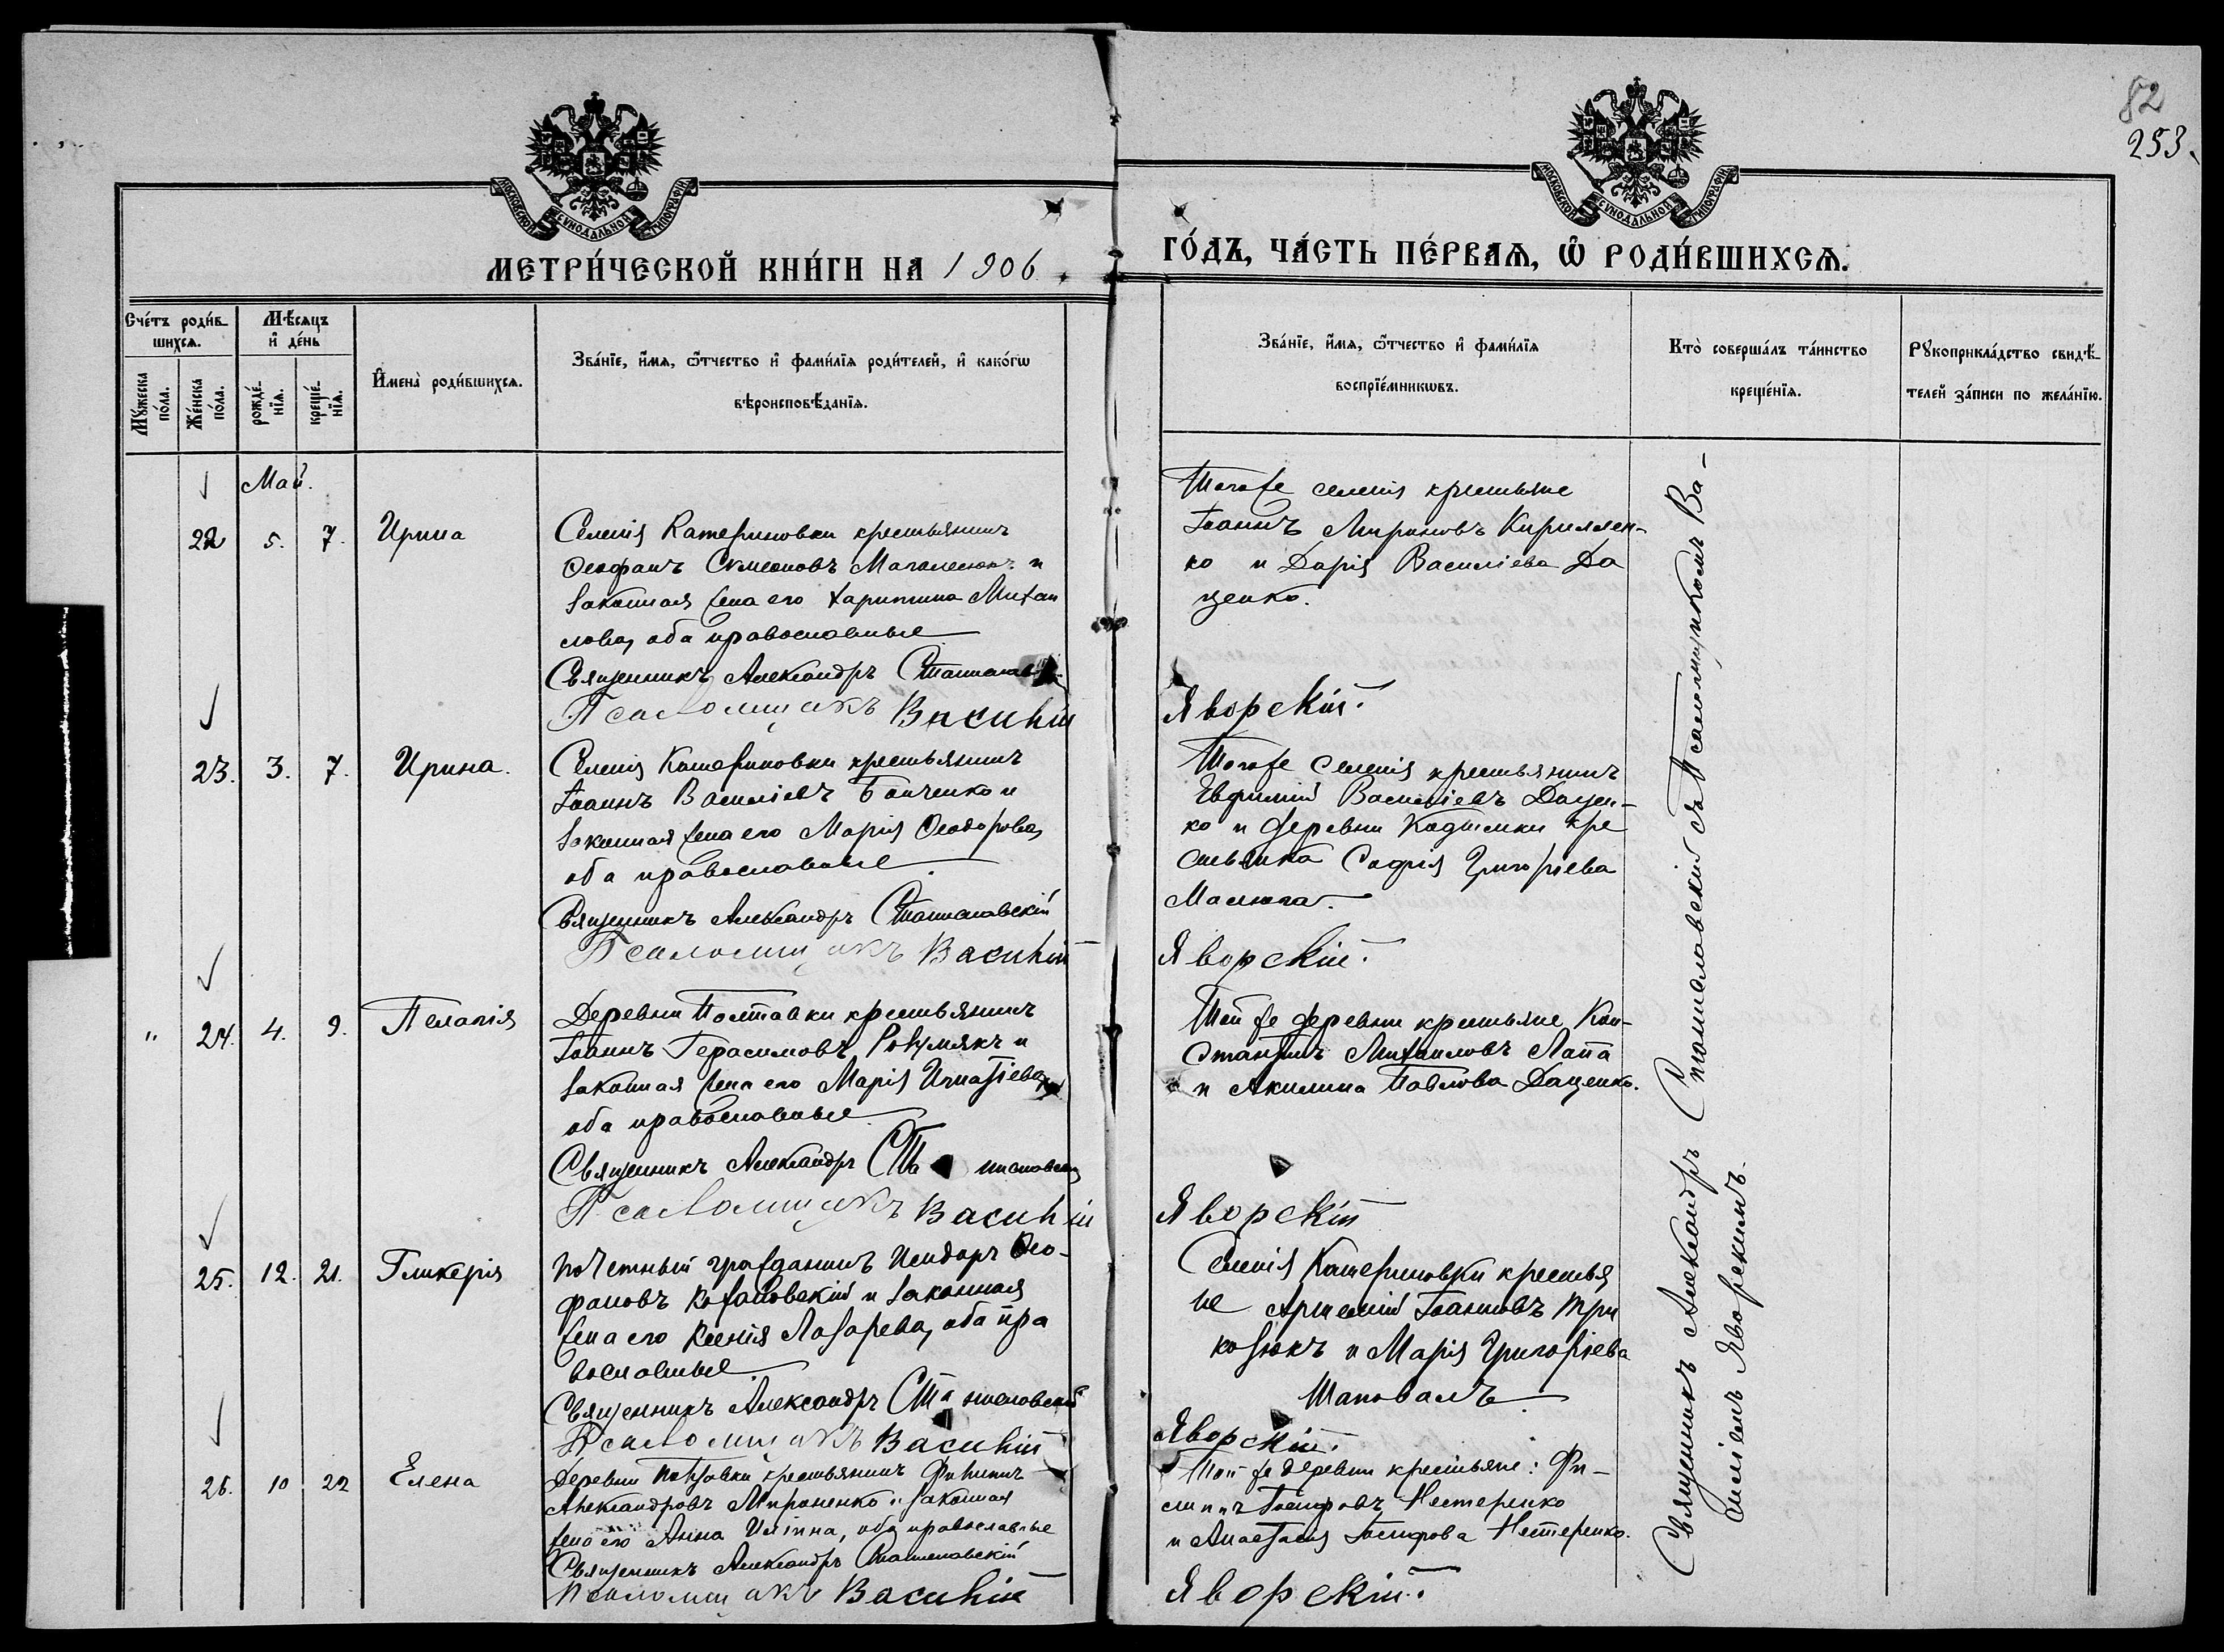 82
253.
МОСКОВСКОЙ СѴНОДАЛЬНОЙ ТИПОГРАФІИ
МОСКОВСКОЙ СѴНОДАЛЬНОЙ ТИПОГРАФІИ
МЕТРИ́ЧЕСКОЙ КНИ́ГИ НА 1906
ГО́ДЪ, ЧА́СТЬ ПЕ́РВАѦ, Ѿ РОДИ́ВШИХСѦ.
Сче́тъ роди́в-
шихсѧ.
Мꙋ́жеска по́ла.
Же́нска по́ла.
Мѣ́сѧцъ
и҆ де́нь
рожде́-
нїѧ.
креще́-
нїѧ.
И҆мена̀ роди́вшихсѧ.
Зва́нїе, и҆́мѧ, ѻ҆́тчество и҆ фами́лїѧ роди́телей, и҆ како́гѡ
вѣроисповѣ́данїѧ.
Зва́нїе, и҆́мѧ, ѻ҆́тчество и҆ фами́лїѧ
воспрїе́мникѡвъ.
Кто̀ соверша́лъ та́инство
креще́нїѧ.
Рꙋкоприкла́дство свидѣ́-
телей за́писи по жела́нїю.
Май.
22 5. 7. Ирина
Селенія Катериновки крестьянинъ
Ѳеофанъ Симеоновъ и
законная жена его Харитина Михаи
лова, оба православные
Священникъ Александръ
Псаломщикъ Василій
Тогоже селенія крестьяне
Іоаннъ Мироновъ Кириллен-
ко и Дарія Василіева Да
ценко.
Яворскій.
23. 3. 7. Ирина.
Селенія Катериновки крестьянинъ
Іоаннъ Василіевъ и
законная жена его Марія Ѳеодорова,
оба православные
Священникъ Александръ Станиславскій
Псаломщикъ Василій
Тогоже селенія крестьянинъ
Евфимій Василіевъ Дацен-
ко и деревни кре
стьянка Софія Григоріева
Малюга.
Яворскій.
" 24. 4. 9. Пелагія
Деревни Полтавки крестьянинъ
Іоаннъ Герасимовъ и
законная жена его Марія Игнатіева,
оба православные
Священникъ Александръ Станиславскій
Псаломщикъ Василій
Той же деревни крестьяне Кон-
стантинъ Михаиловъ Лапа
и Акилина Павлова Даценко.
Яворскій
25. 12. 21. Гликерія
Почетный гражданинъ Исидоръ Ѳео-
фановъ и законная
жена его Ксенія Лазарева, оба пра
вославные
Священникъ Александръ Станиславскій
Псаломщикъ Василій
Селенія Катериновки крестья
не Артемій Іоанновъ Три
козюкъ и Марія Григоріева
Шаповалъ
Яворскій.
26. 10 22 Елена
Деревни крестьянинъ Филиппъ
Александровъ Мироненко и законная
жена его Анна Иліина, оба православные
Священникъ Александръ Станиславскій
Псаломщикъ Василій
Той же деревни крестьяне: Фи-
липпъ Іосифовъ Нестеренко
и Анастасія Іосифова Нестеренко.
Яворскій.
Священникъ Александръ Станиславскій съ Псаломщикомъ Ва-
силіемъ Яворскимъ.